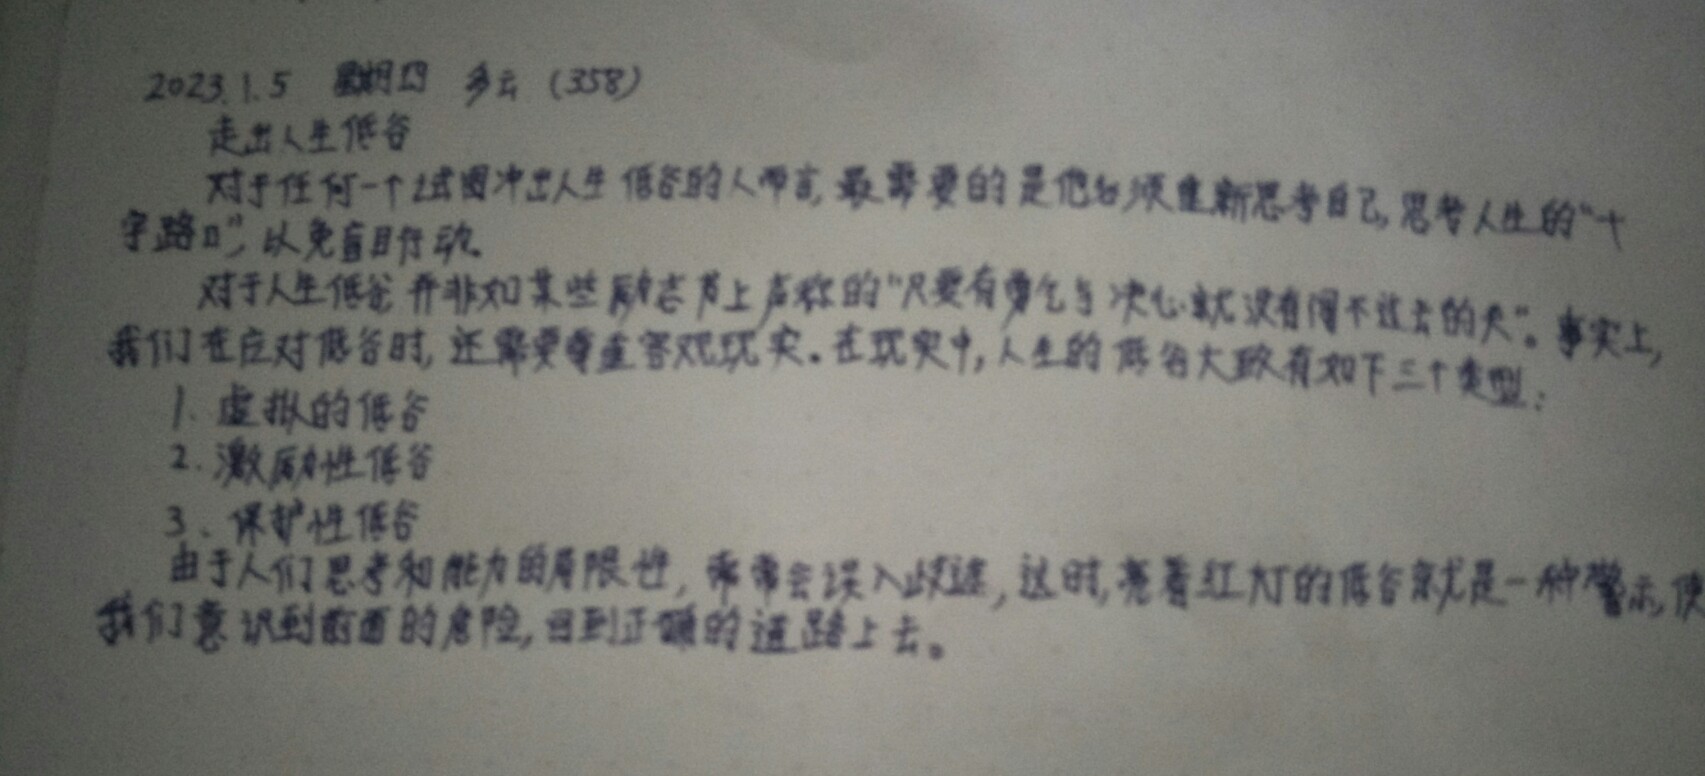 2023.1.5 星期四 多云 (358)
走出人生低谷
对于任何一个试图冲出人生低谷的人而言,最需要的是他必须重新思考自己,思考人生的“十
字路口”,以免盲目行动.
对于人生低谷并非如某些励志书上声称的“只要有勇气与决心就没有闯不过去的关”。事实上,
我们在应对低谷时,还需要尊重客观现实.在现实中,人生的低谷大致有如下三个类型:
1.虚拟的低谷
2.激励性低谷
3、保护性低谷
由于人们思考和能力的局限性,常常会误入歧途,这时,亮着红灯的低谷就是一种警示,使
我们意识到前面的危险,回到正确的道路上去。